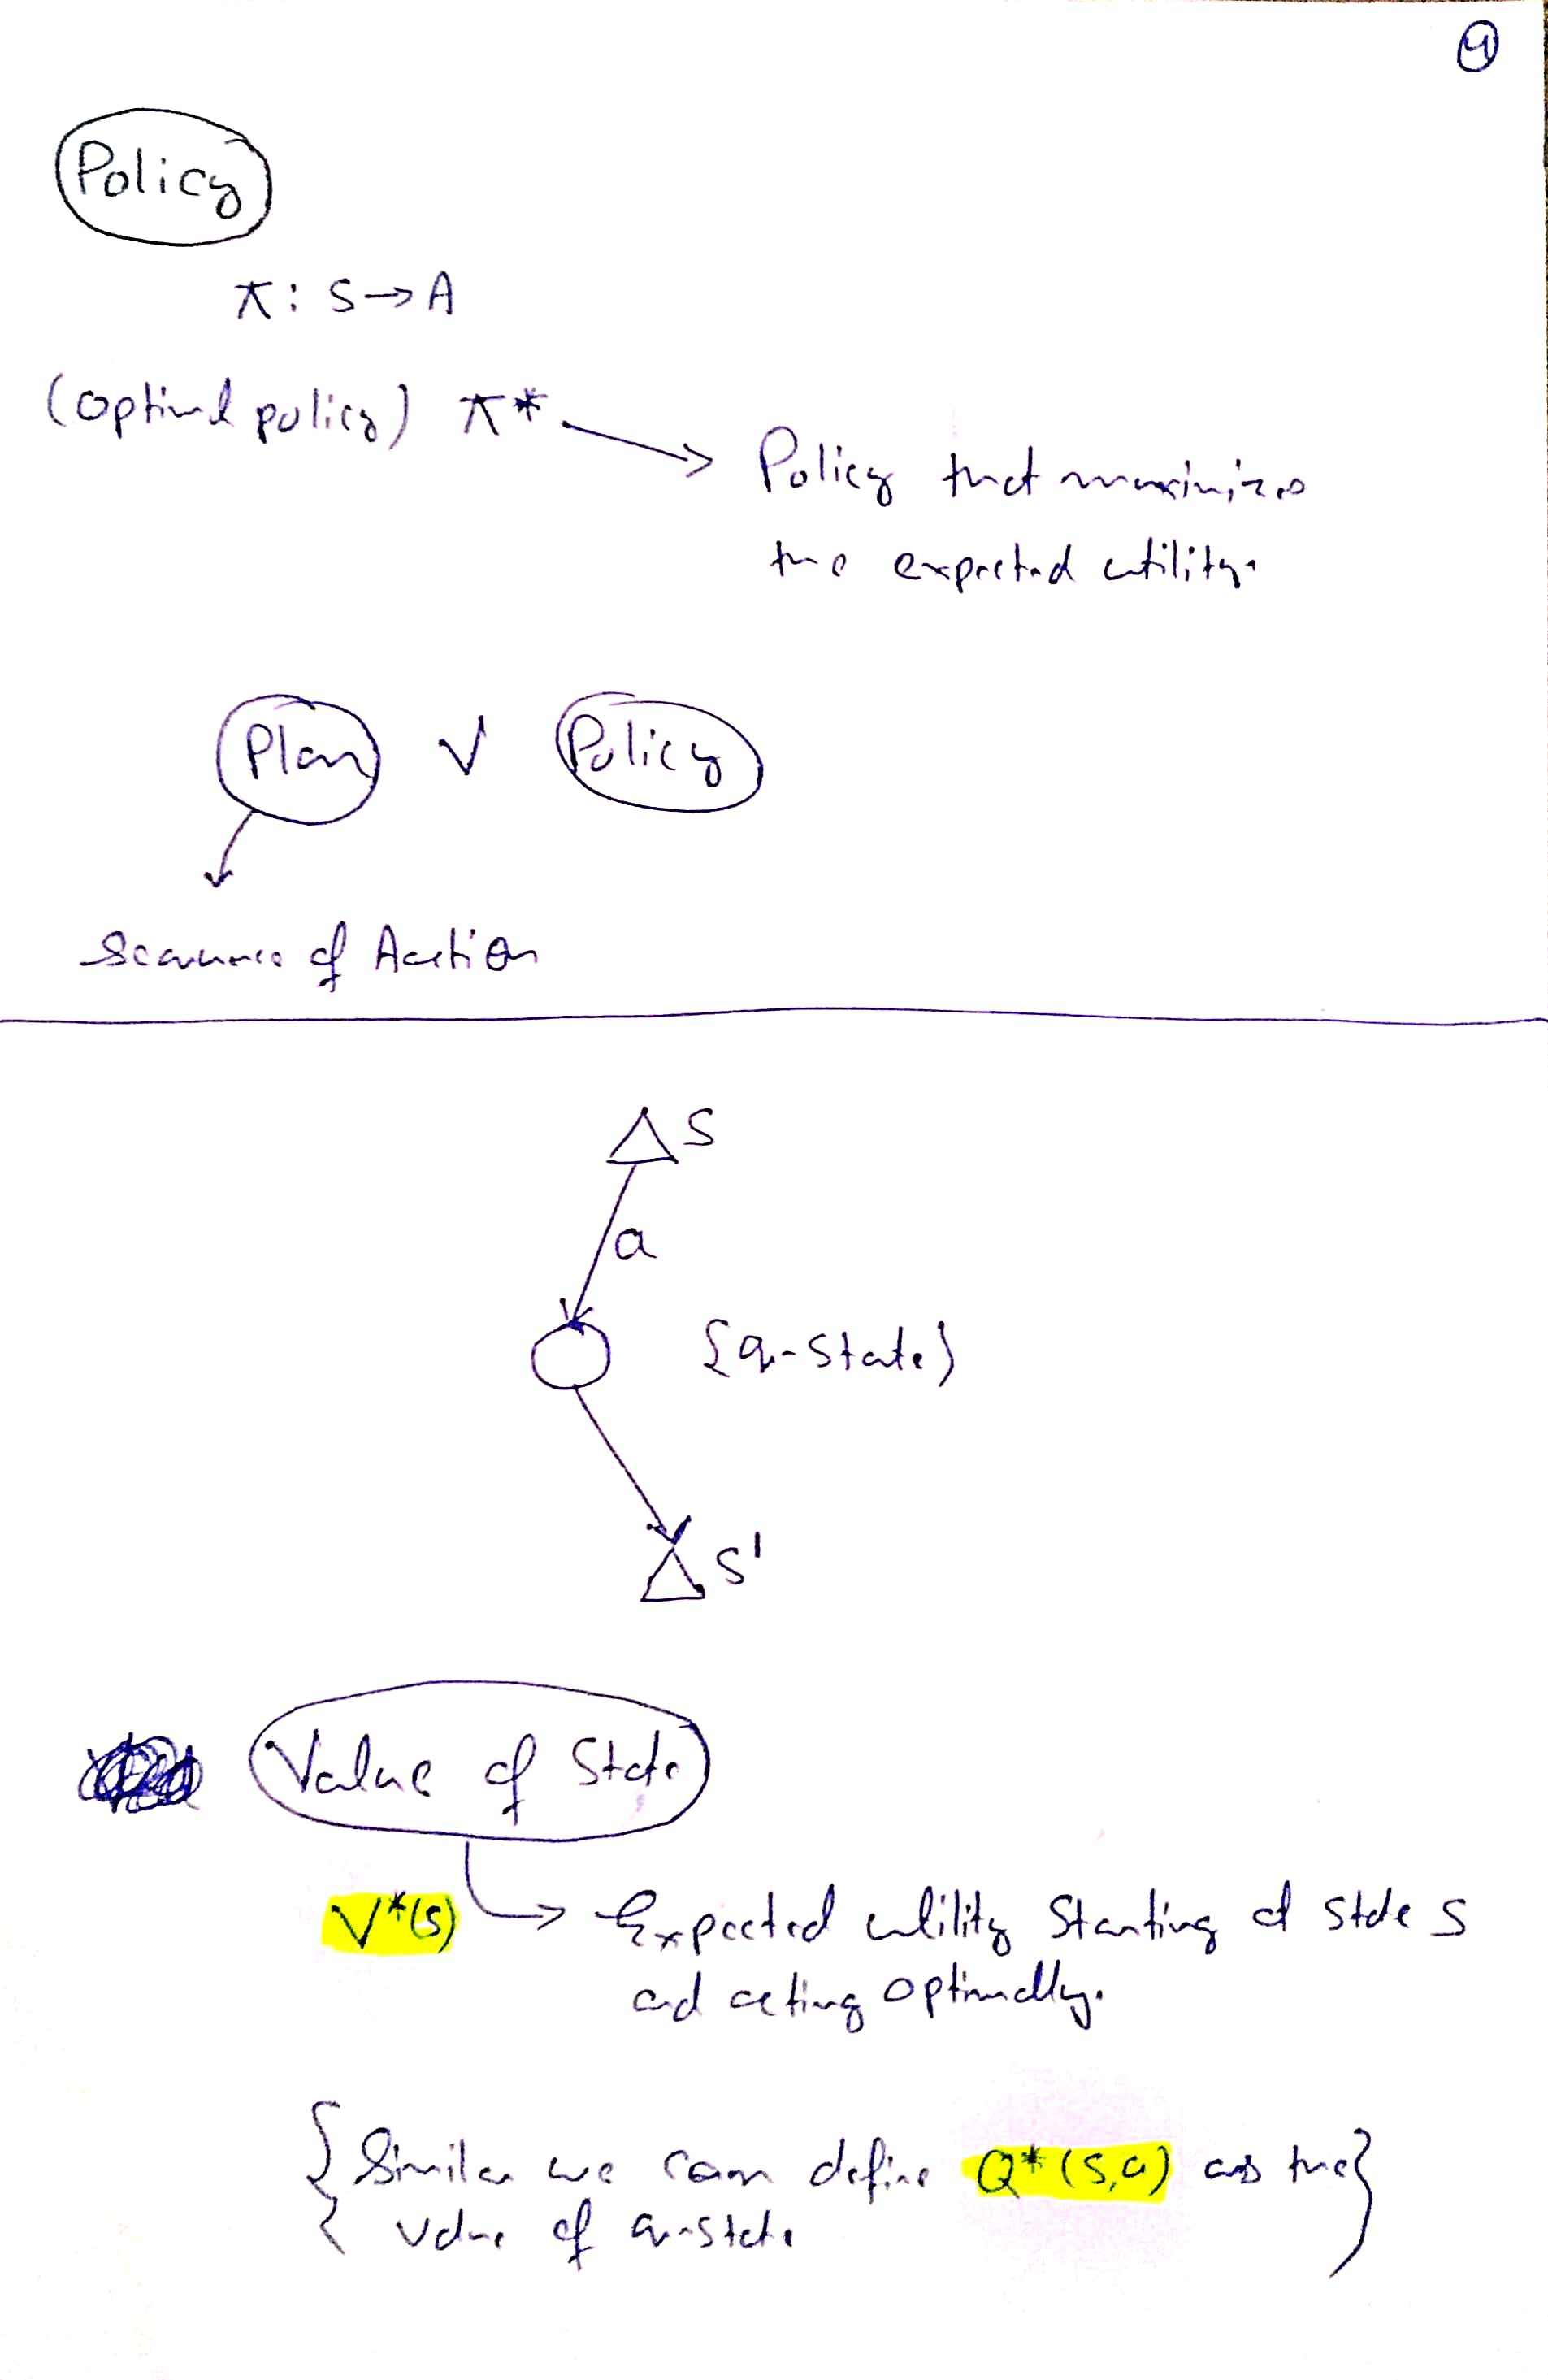 4
Policy
π: S→A
(optimal policy) π* → Policy that maximizes
the expected utility.
Plan V Policy
Sequence of Action
S
a
{q-state}
S'
Value of State
V*(s) → Expected utility Starting at state S
and acting optimally.
{Similar we can define Q*(S,a) as the}
value of q-state